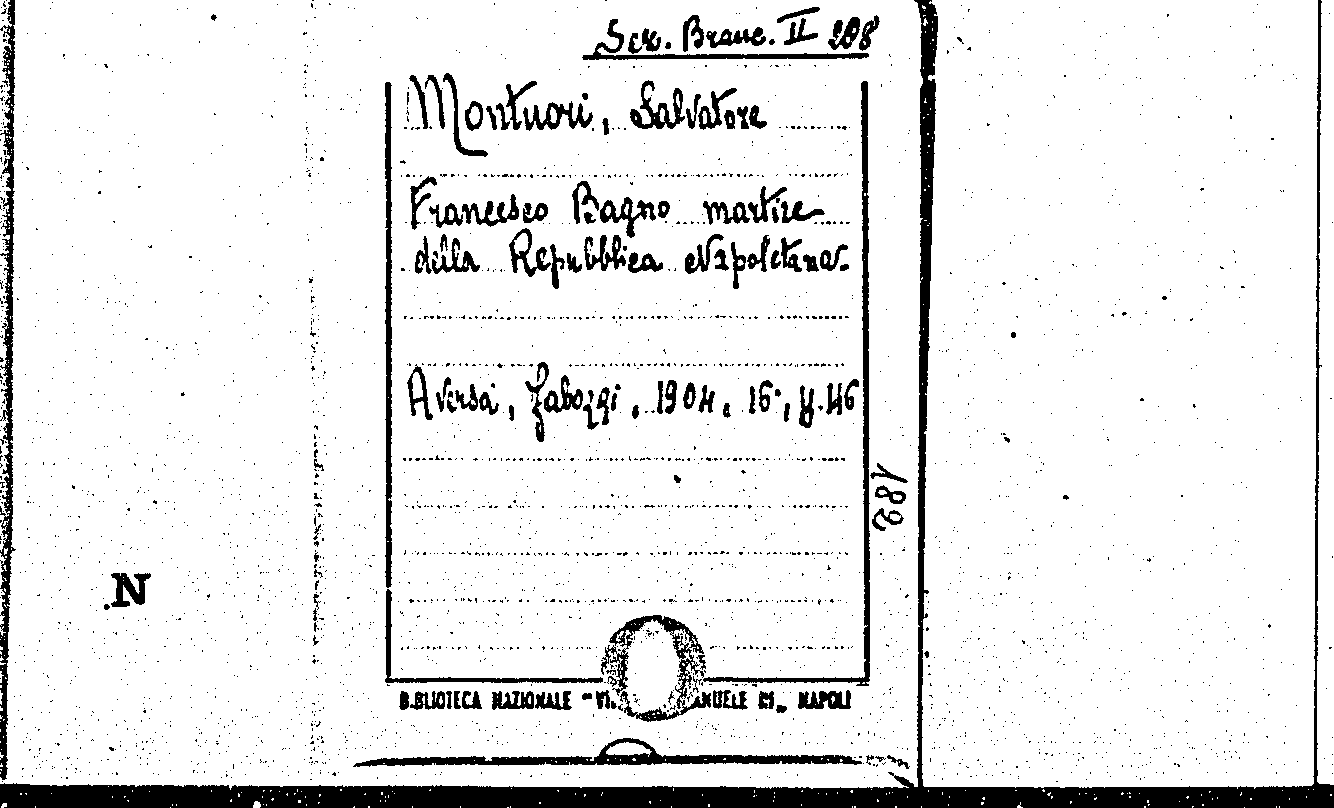 Sez. Branc. II 208
Montuori, Salvatore
Francesco Bagno martire
della Repubblica Napoletana.
Aversa, Fabozzi, 1904, 16°, p. 46
182
N
B.BLIOTECA NAZIONALE "VI ANUELE III" NAPOLI